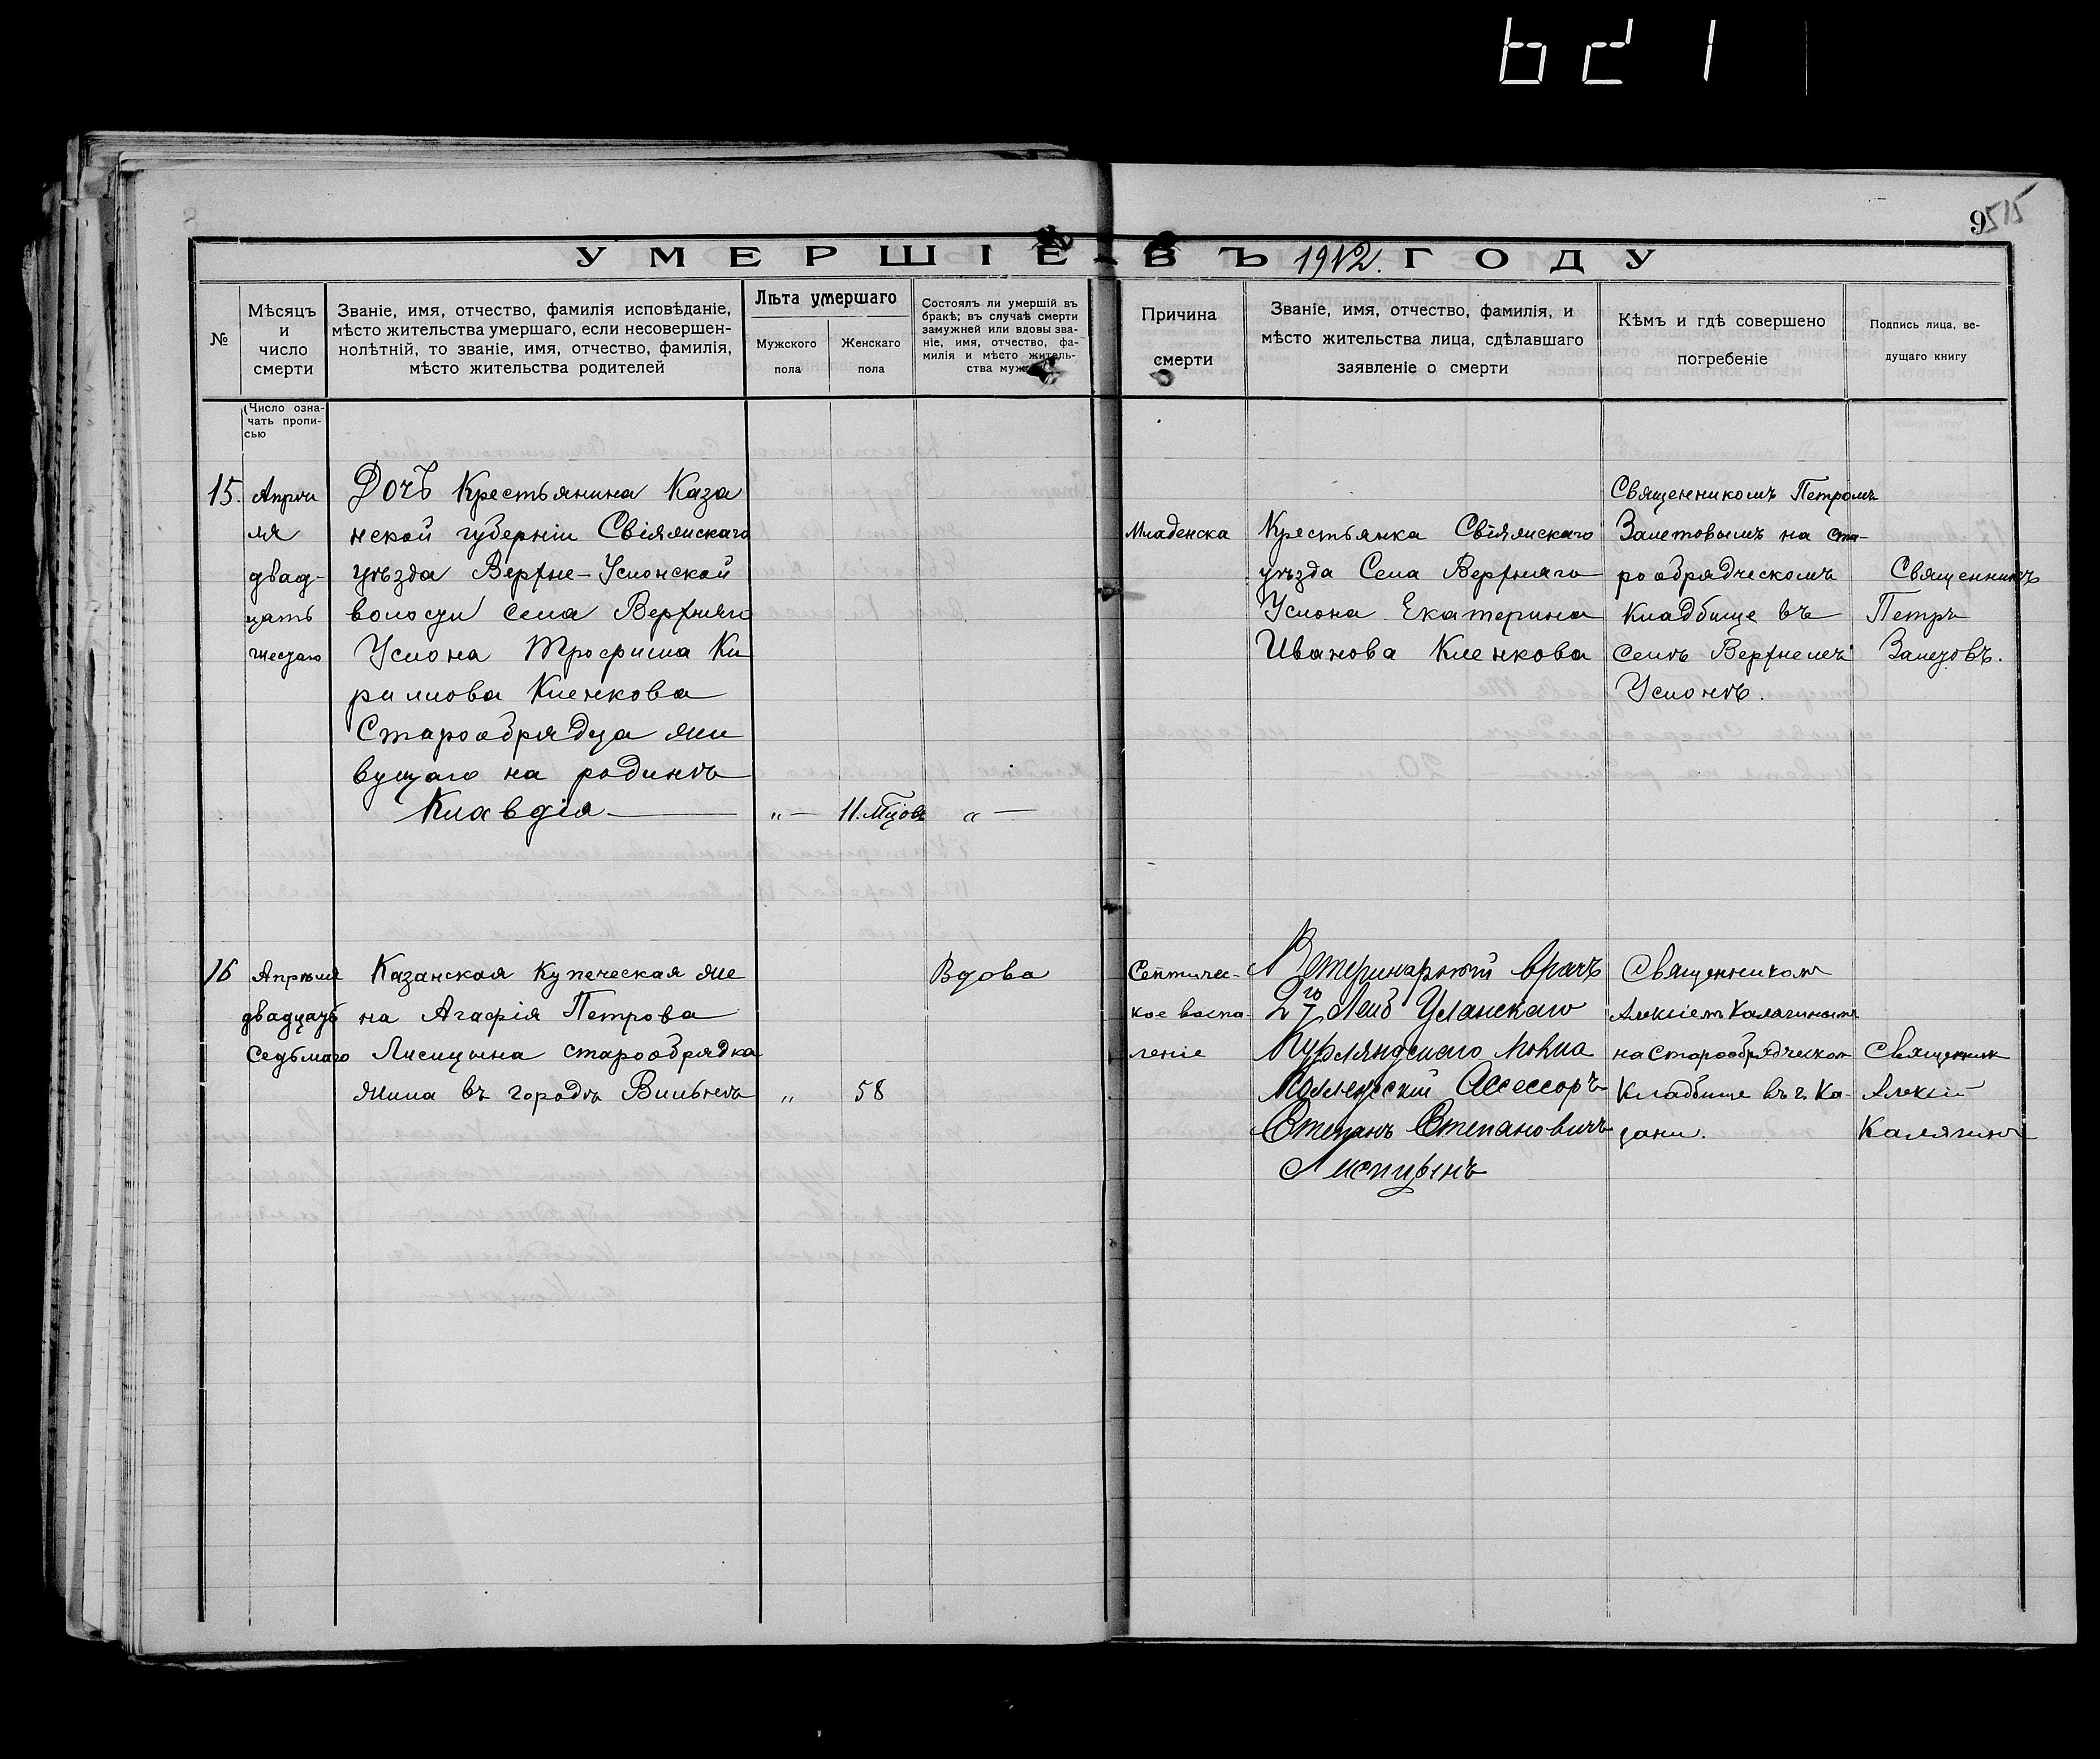 621
9
515
УМЕРШІЕ ВЪ 1912. ГОДУ
№
Мѣсяцъ
и
число
смерти
Званіе, имя, отчество, фамилія исповѣданіе,
мѣсто жительства умершаго, если несовершен-
нолѣтній, то званіе, имя, отчество, фамилія,
мѣсто жительства родителей
Лѣта умершаго
Мужского
пола
Женскаго
пола
Состоялъ ли умершій въ
бракѣ; въ случаѣ смерти
замужней или вдовы зва-
ніе, имя, отчество, фа-
милія и мѣсто житель-
ства мужа
Причина
смерти
Званіе, имя, отчество, фамилія, и
мѣсто жительства лица, сдѣлавшаго
заявленіе о смерти
Кѣмъ и гдѣ совершено
погребеніе
Подпись лица, ве-
дущаго книгу
(Число озна-
чать пропи-
сью
15.
Апрѣ
ля
двад-
цать
шестаго
Дочь Крестьянина Каза
нской губерніи Свіяжскаго
уѣзда Верхне-Услонской
волости села Верхняго
Услона Трофима Ки
рилова Кленкова
Старообрядца жи
вущаго на родинѣ
Клавдія
„ —
11. Мцовъ
„ —
Младенска
Крестьянка Свіяжскаго
уѣзда Села Верхняго
Услона Екатерина
Иванова Кленкова
Священникомъ Петромъ
Залетовымъ на ста-
рообрядческомъ
кладбище въ
селѣ Верхнемъ
Услонѣ.
Священникъ
Петръ
Залетовъ.
16
Апрѣля
двадцать
Седьмаго
Казанская Купеческая же
на Агафія Петрова
Лисицына старообрядка
жила въ городѣ Вильнѣ
„
58
Вдова
Септичес-
кое воспа-
леніе
Ветеринарный врачъ
2го Лейб Уланскаго
Курляндскаго полка
Коллежскій Асессоръ
Степанъ Степановичъ
Лисицынъ
Священником
Алексіемъ Калягинымъ
на Старообрядческом
Кладбище въ г. Ка-
зани.
Священник
Алексій
Калягинъ